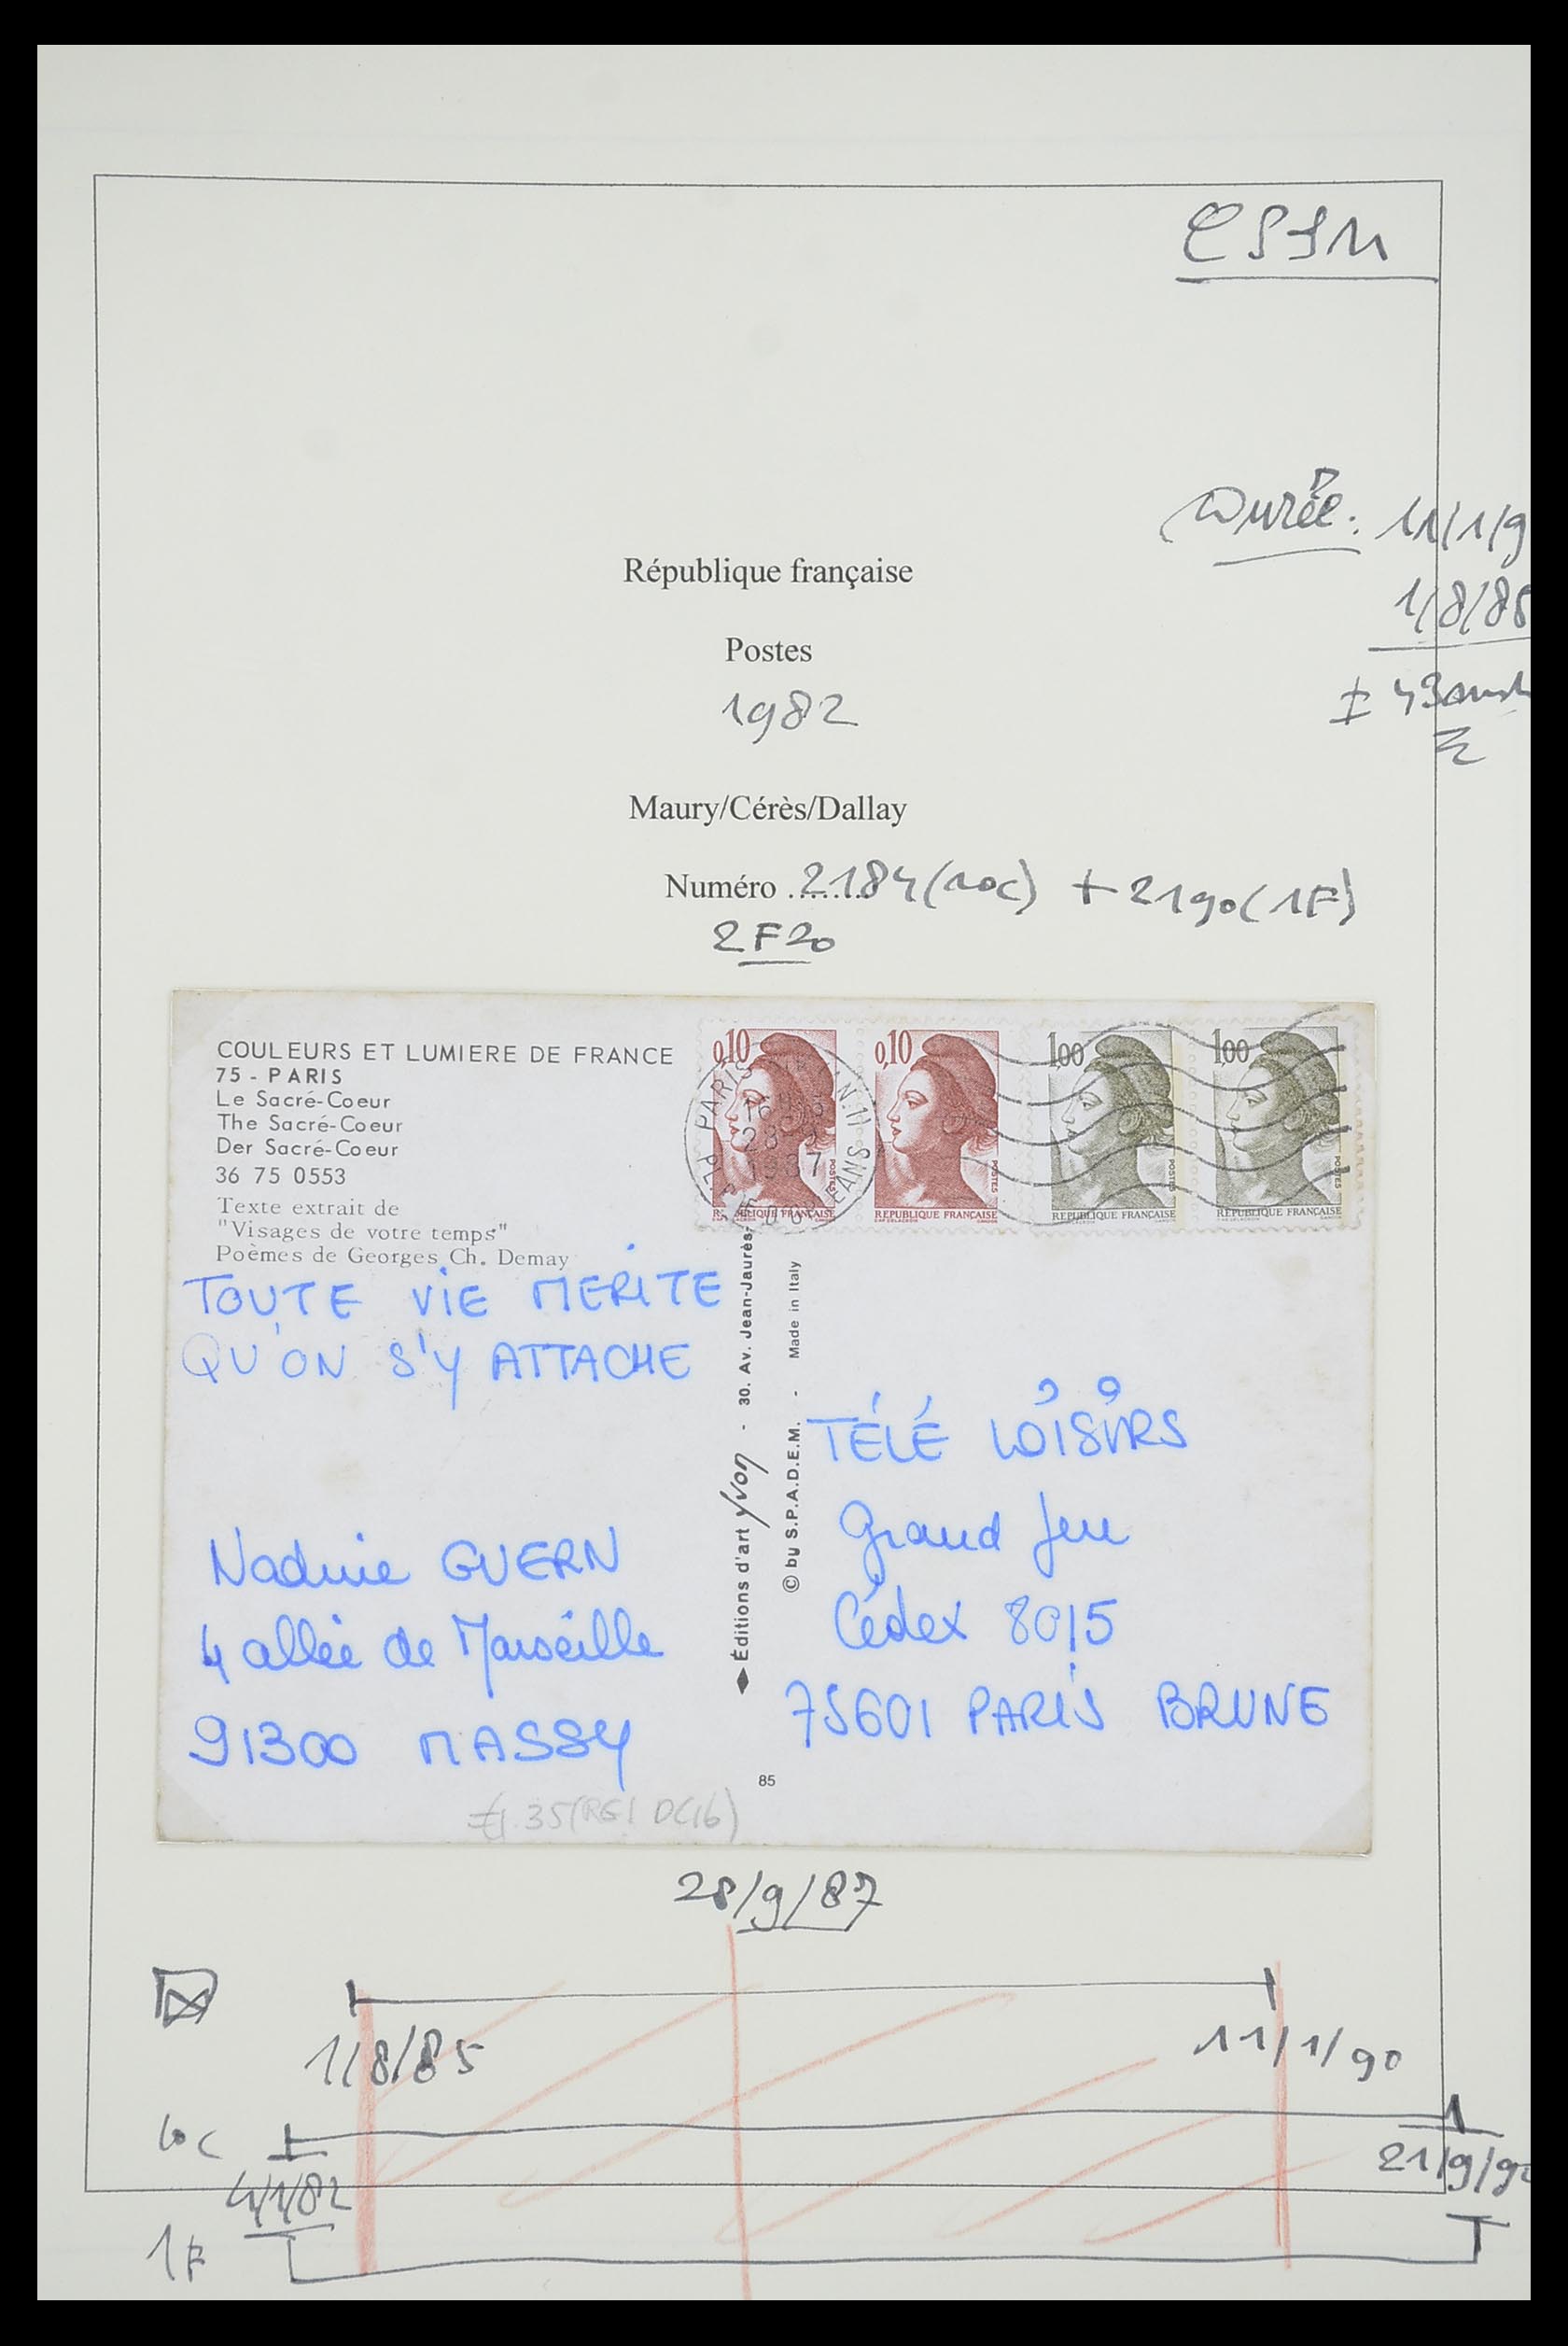 Durée: 11/1/9
1/8/85
République française
Postes
1982
Maury/Cérès/Dallay
Numéro ........ 2184 (10c) + 2190 (1F)
2F20
COULEURS ET LUMIERE DE FRANCE
75 - PARIS
Le Sacré-Coeur
The Sacré-Coeur
Der Sacré-Coeur
36 75 0553
Texte extrait de
"Visages de votre temps"
Poèmes de Georges Ch. Demay
0,10
0,10
1,00
1,00
POSTES
POSTES
POSTES
POSTES
RÉPUBLIQUE FRANÇAISE
RÉPUBLIQUE FRANÇAISE
RÉPUBLIQUE FRANÇAISE
RÉPUBLIQUE FRANÇAISE
TOUTE VIE MERITE
QU'ON S'Y ATTACHE
Nadine GUERN
4 allée de Marseille
91300 MASSY
Éditions d'art Yvon - 30. Av. Jean-Jaurès-
© by S.P.A.D.E.M. - Made in Italy
TÉLÉ LOISIRS
Grand Jeu
Cédex 8015
75601 PARIS BRUNE
85
28/9/87
1/8/85
11/1/90
10c
4/1/82
21/9/9
1F